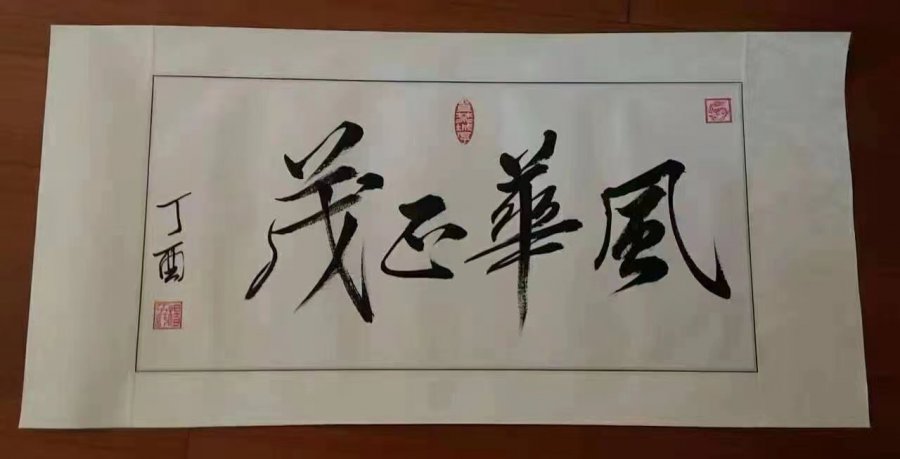 風華正茂
丁酉